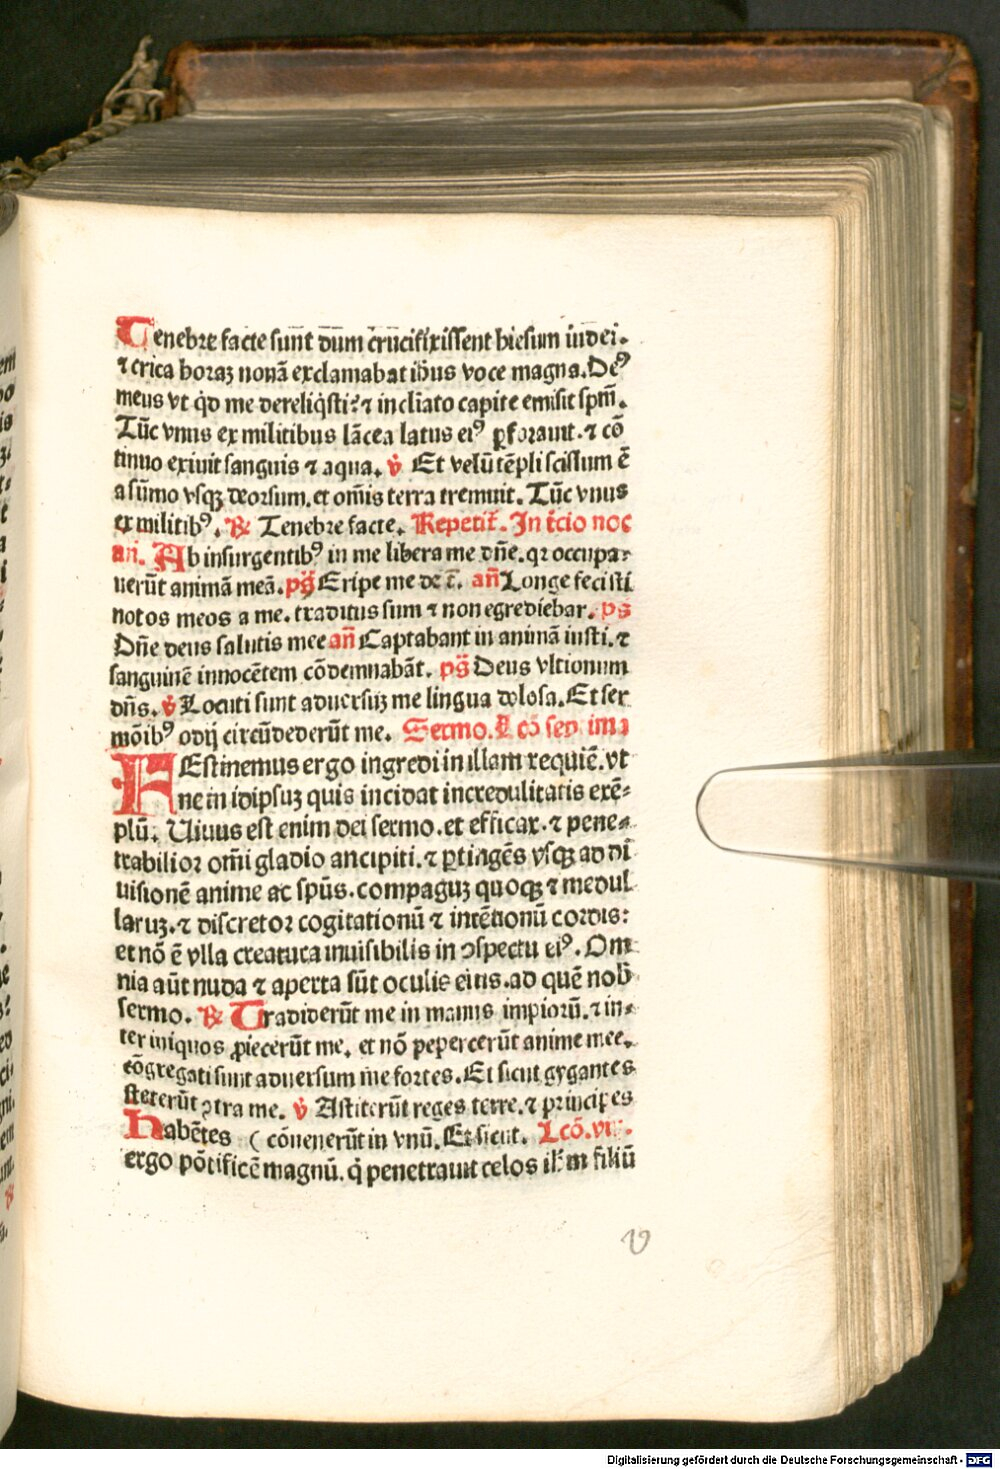 Tenebre facte sunt dum crucifixissent hiesum iudei.
⁊ circa horaꝫ nonā exclamabat ih̄us voce magna. Deꝰ
meus vt qͥd me dereliqͥsti? ⁊ incliato capite emisit sp̄m.
Tūc vnus ex militibus lācea latus eiꝰ ꝑforauit. ⁊ cō
tinuo exiuit sanguis ⁊ aqua. ℣ Et velū tēpli scissum ē
a sūmo vsqꝫ deorsum. et om̄is terra tremuit. Tūc vnus
ex militibꝰ. ℟ Tenebre facte. Repetit᷑. In t̄cio noc
an̄. Ab insurgentibꝰ in me libera me dn̄e. qꝛ occupa⸗
uerūt animā meā. ps̄ Eripe me de ī. an̄ Longe fecisti
notos meos a me. traditus sum ⁊ non egrediebar. ps
Dn̄e deus salutis mee an̄ Captabant in animā iusti. ⁊
sanguinē innocētem cōdemnabāt. ps̄ Deus vltionum
dn̄s. ℣ Locuti sunt aduersuꝫ me lingua dolosa. Et ser
mōibꝰ odij circūdederūt me. Sermo. Lcō sep ima
FEstinemus ergo ingredi in illam requiē. vt
ne in idipsuꝫ quis incidat incredulitatis exē⸗
plū. Uiuus est enim dei sermo. et efficax. ⁊ pene⸗
trabilior om̄i gladio ancipiti. ⁊ ꝑtingēs vsqꝫ ad di
uisionē anime ac sp̄us. compaguꝫ quoqꝫ ⁊ medul
laruꝫ. ⁊ discretor cogitationū ⁊ intētionū cordis:
et nō ē vlla creatura inuisibilis in ꝯspectu eiꝰ. Om
nia aūt nuda ⁊ aperta sūt oculis eius. ad quē nob̄
sermo. ℟ Tradiderūt me in manus impiorū. ⁊ in⸗
ter iniquos ꝓiecerūt me. et nō pepercerūt anime mee.
cōgregati sunt aduersum me fortes. Et sicut gygantes
steterūt ꝯtra me. ℣ Astiterūt reges terre. ⁊ principes
Habētes ( cōuenerūt in vnū. Et sicut. Lcō. vi
ergo pōtificē magnū. qͥ penetrauit celos ih̄m filiū
v
Digitalisierung gefördert durch die Deutsche Forschungsgemeinschaft - DFG